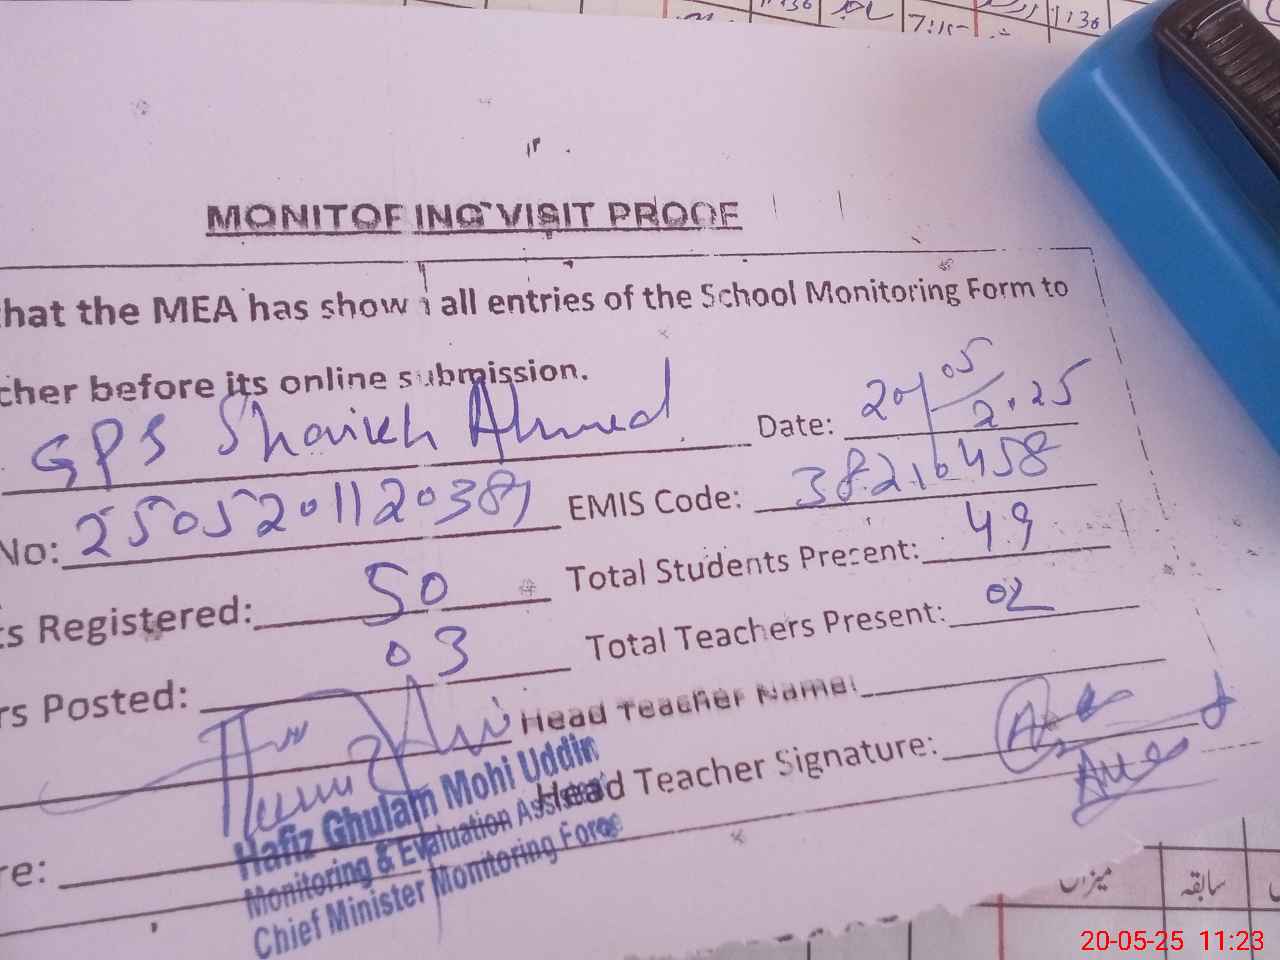 7:15
1130
MONITORING VISIT PROOF
that the MEA has shown all entries of the School Monitoring Form to
cher before its online submission.
GPS Shaikh Ahmed Date: 20/05/2025
No: 2505201120389 EMIS Code: 38210458
ts Registered: 50 Total Students Present: 49
rs Posted: 03 Total Teachers Present: 02
Head Teacher Name:
Head Teacher Signature:
re:
Hafiz Ghulam Mohi Uddin
Monitoring & Evaluation Assistant
Chief Minister Monitoring Force
میزان سابقہ
20-05-25 11:23